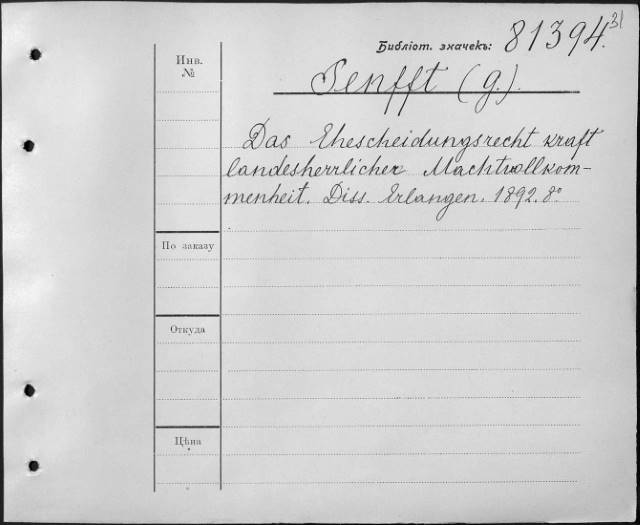 31
Библіот. значекъ: 81394.
Инв. №
Senfft (G.).
Das Ehescheidungsrecht kraft
landesherrlicher Machtvollkom-
menheit. Diss. Erlangen. 1892. 8°
По заказу
Откуда
Цѣна